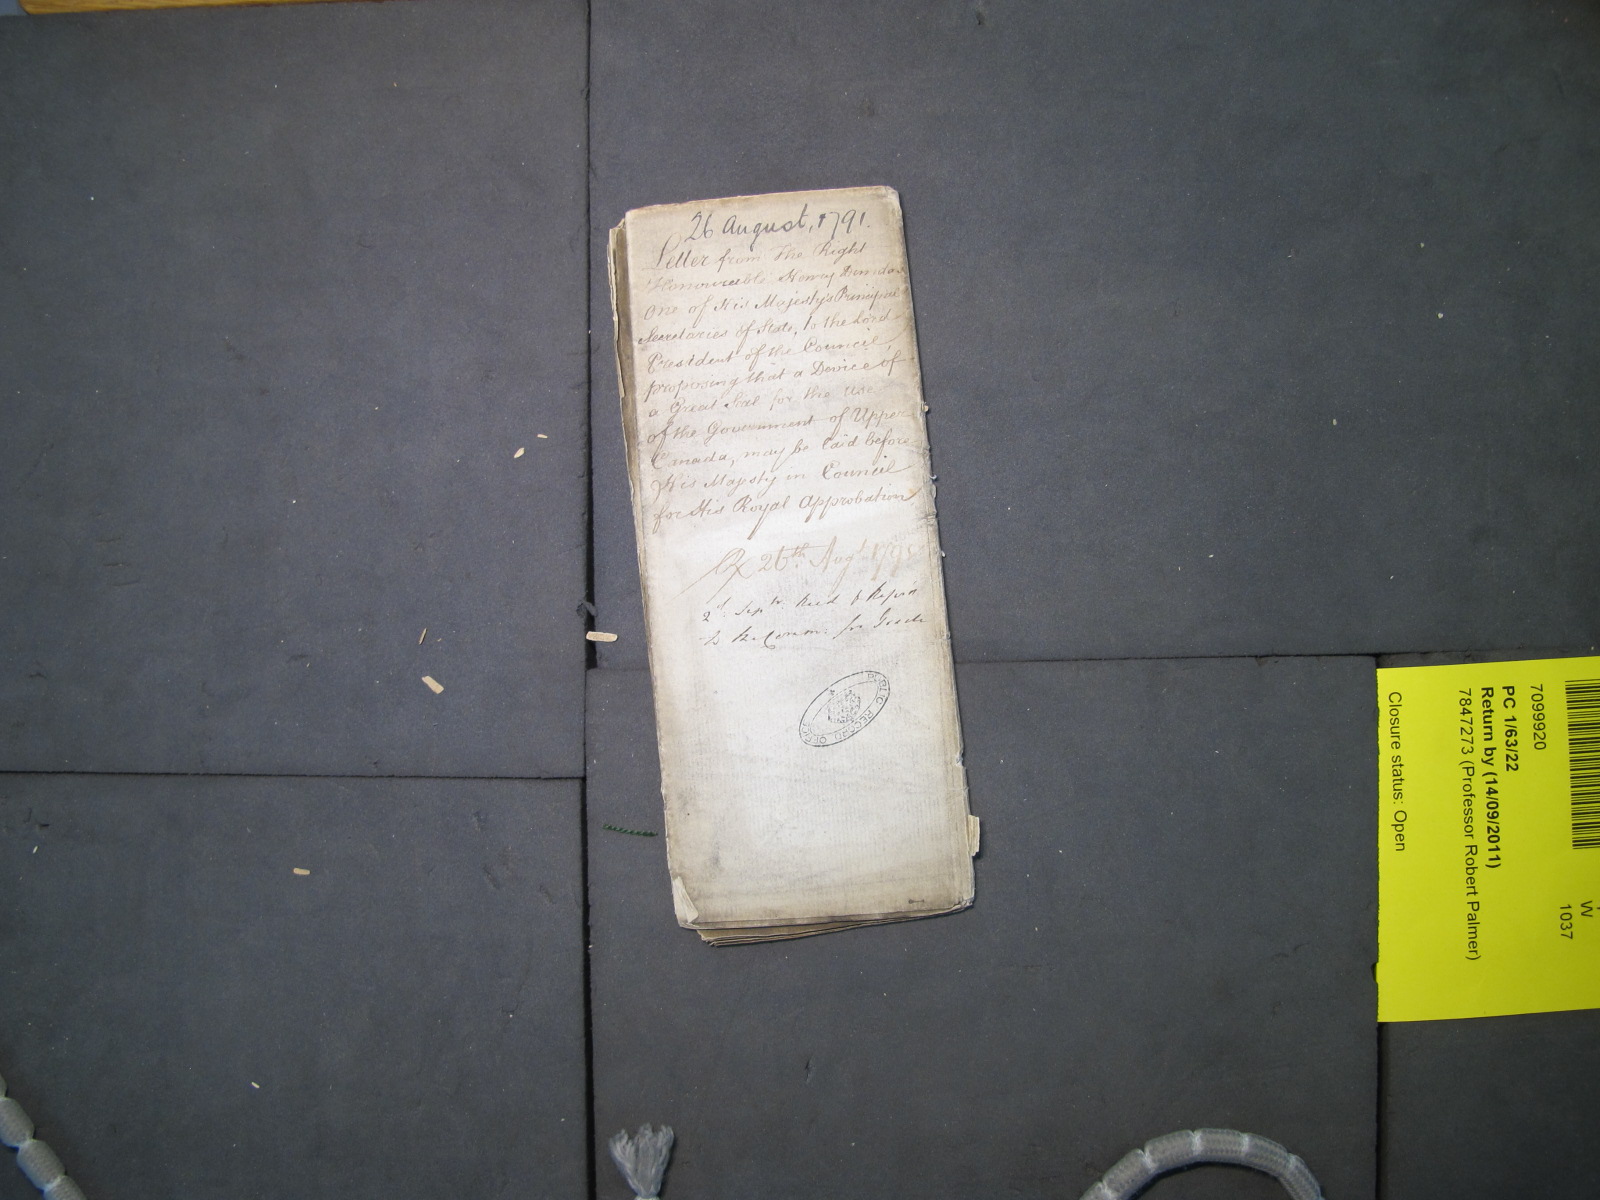 26 August, 1791.
Letter from the Right
Honourable Henry Dundas
one of His Majesty's Principal
Secretaries of State, to the Lord
President of the Council,
proposing that a Device of
a Great Seal for the Use
of the Government of Upper
Canada, may be laid before
His Majesty in Council
for His Royal Approbation
Rx 26th Augt 1791
2d. Septr. Read &
to the Comm:
PUBLIC RECORD OFFICE
7099920
PC 1/63/22
Return by (14/09/2011)
7847273 (Professor Robert Palmer)
Closure status: Open
W
1037